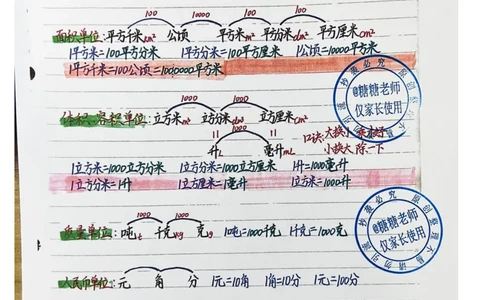 100 10000 100 100
面积单位: 平方千米km² 公顷 平方米m² 平方分米dm² 平方厘米cm²
1平方米=100平方分米 1平方分米=100平方厘米 1公顷=10000平方米
1平方千米=100公顷=1000000平方米
1000 1000
体积、容积单位: 立方米m³ 立方分米dm³ 立方厘米cm³
1000
升L 毫升mL
口诀:大换小 乘上好
小换大 除一下
1立方米=1000立方分米 1立方分米=1000立方厘米 1升=1000毫升
1立方分米=1升 1立方厘米=1毫升 1立方米=1000升
1000 1000
质量单位: 吨t 千克kg 克g 1吨=1000千克 1千克=1000克
人民币单位: 元 角 分 1元=10角 1角=10分 1元=100分
@糖糖老师
仅家长使用
@糖糖老师
仅家长使用